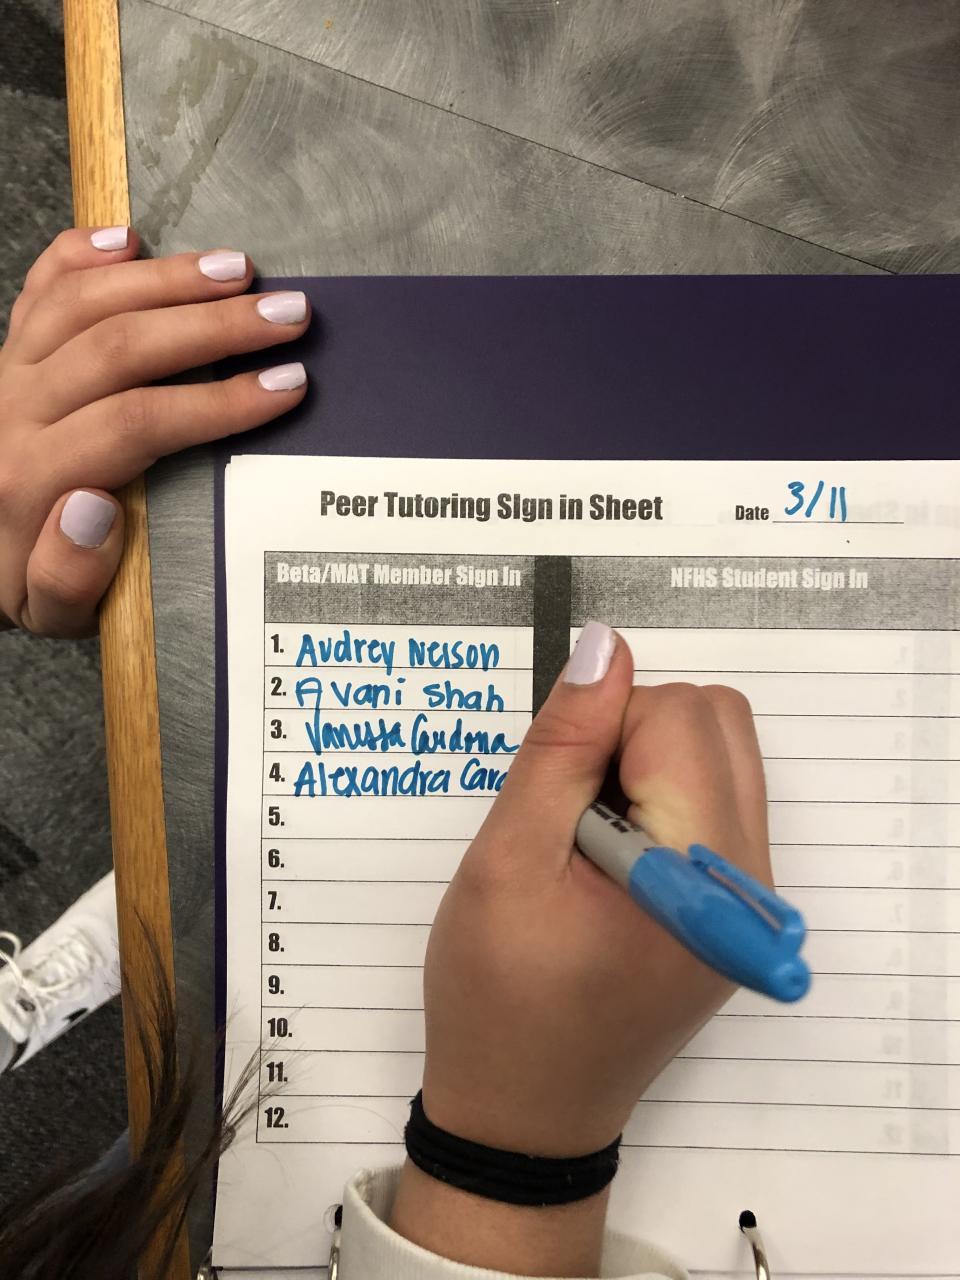 Peer Tutoring Sign in Sheet Date 3/11
Beta/MAT Member Sign In NFHS Student Sign In
1. Audrey Nelson
2. Avani Shah
3. Vanessa Cardona
4. Alexandra
5.
6.
7.
8.
9.
10.
11.
12.